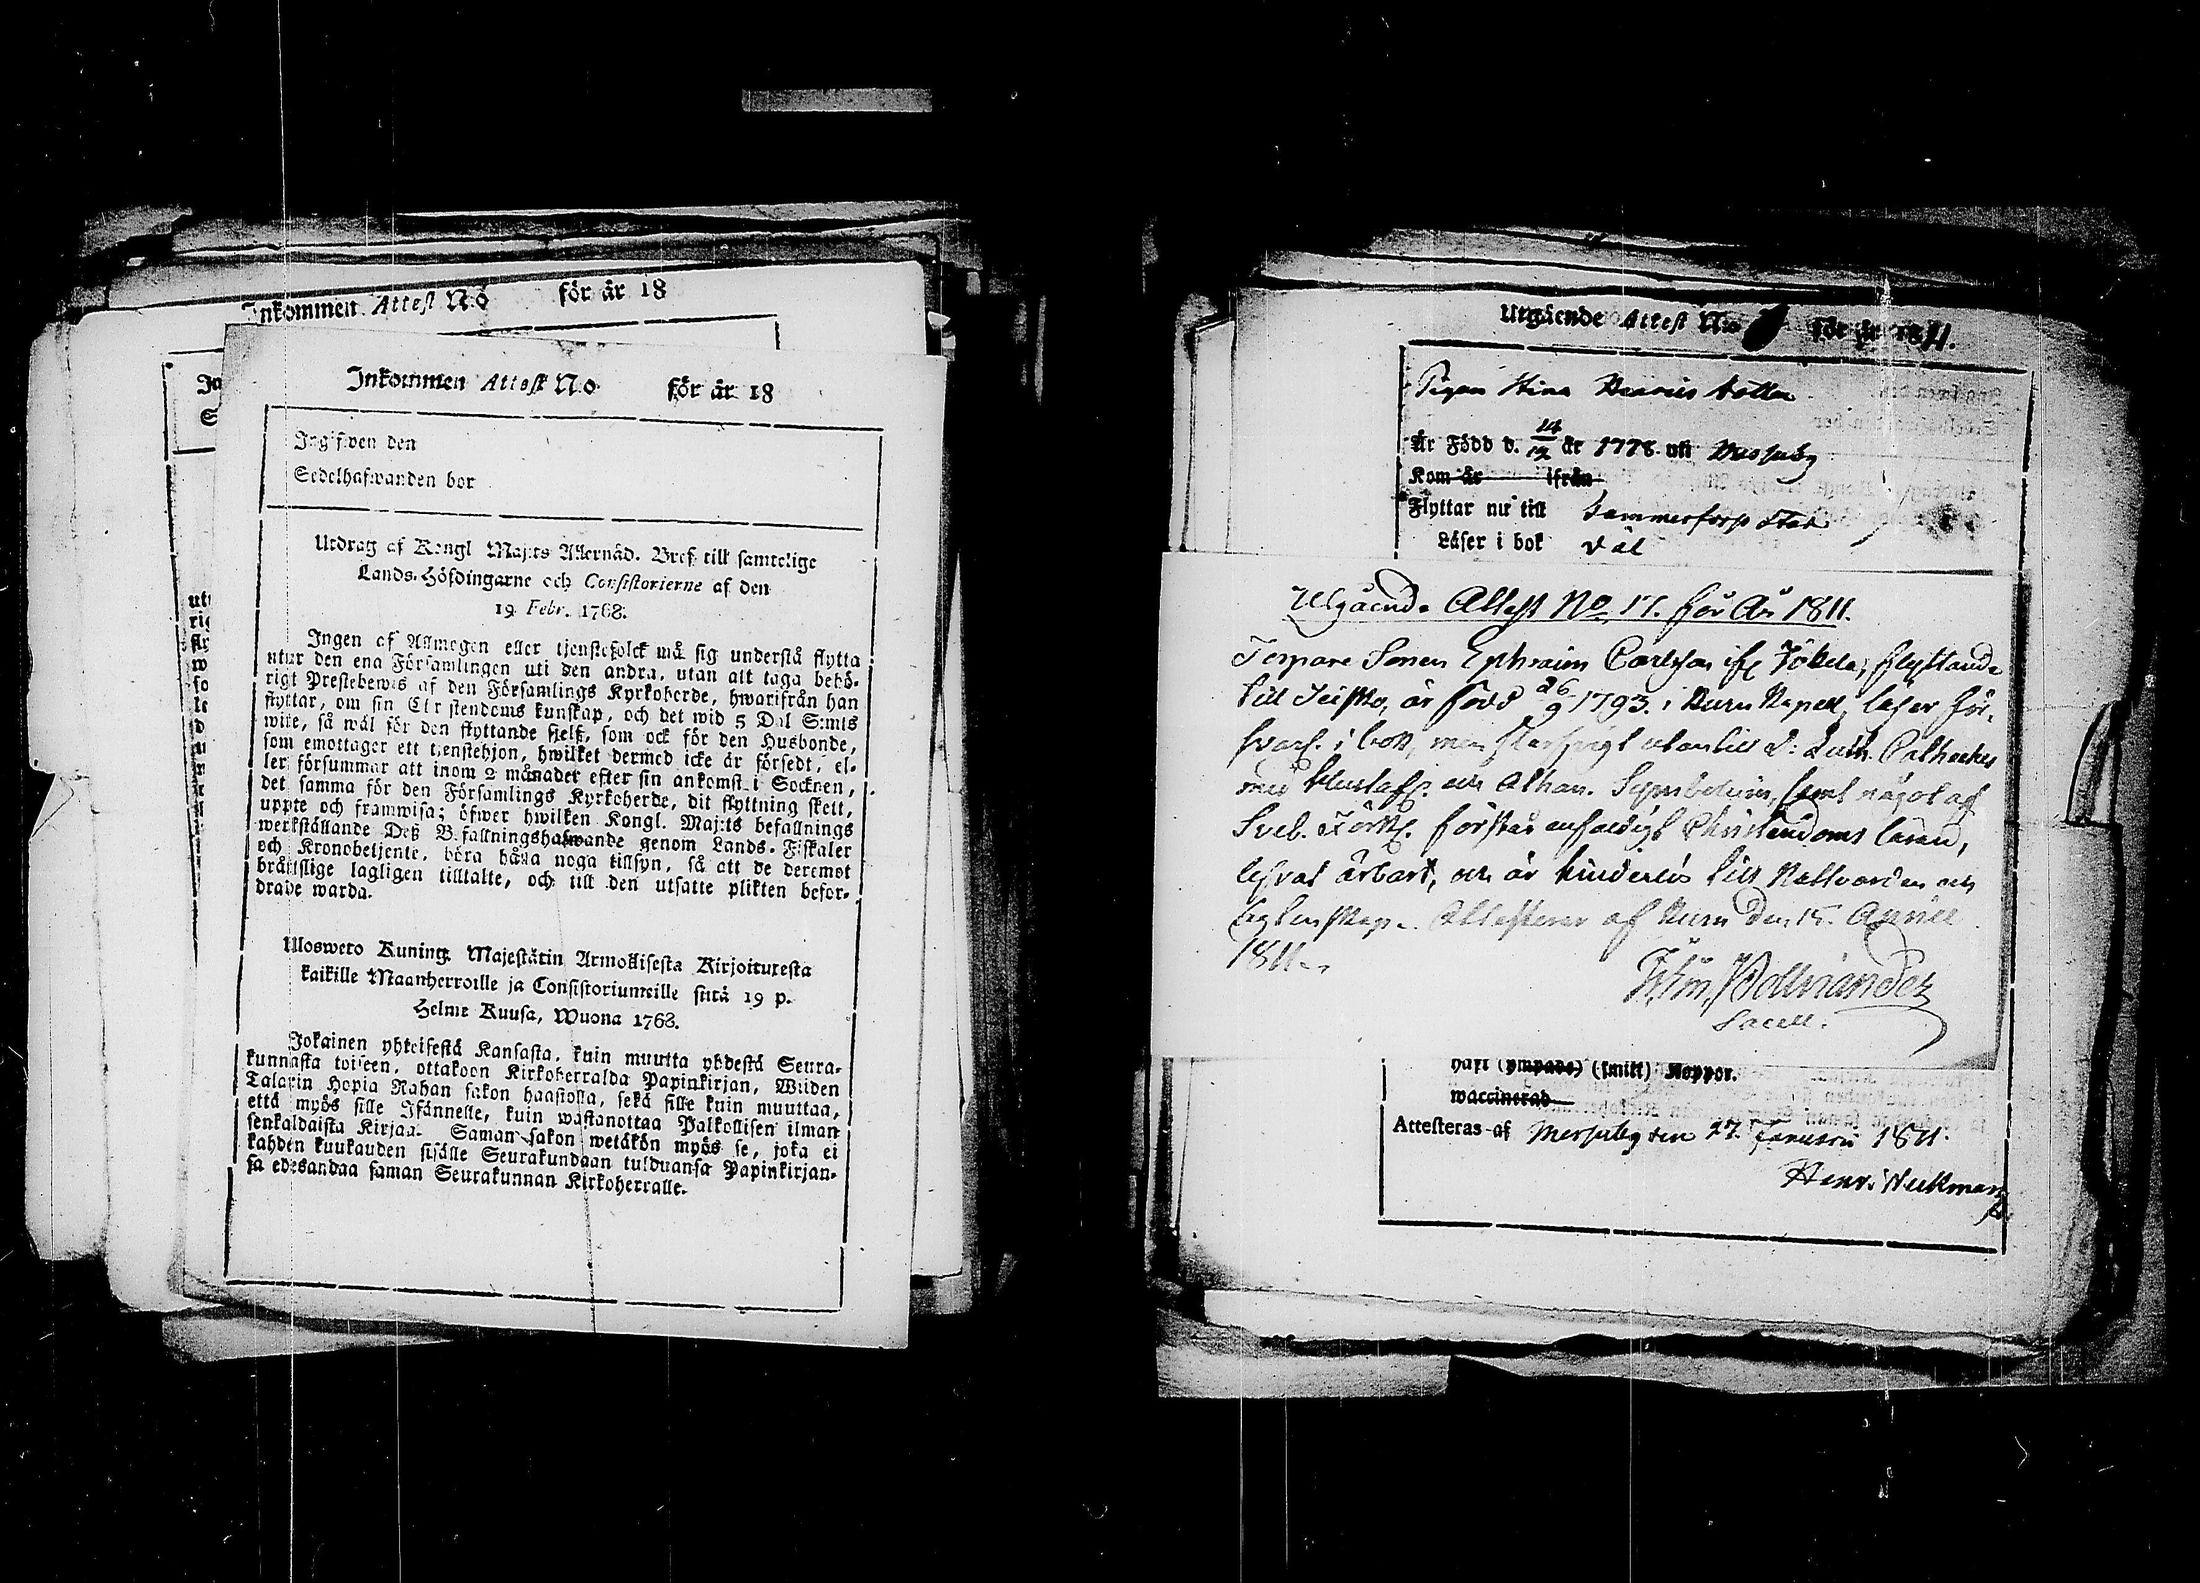 Inkommen Attest No för år 18
Inkommen Attest No för år 18
Ingifwen den
Sedelhafwanden bor
Utdrag af Kongl Maj:ts Allernåd. Bref till samtelige
Lands-Höfdingarne och Consistorierne af den
19 Febr. 1768.
Ingen af Allmogen eller tjenstefolck må sig understå flytta
utur den ena Församlingen uti den andra, utan att taga behö-
rigt Prestebewis af den Församlings Kyrkoherde, hwarifrån han
flyttar, om sin Christendoms kunskap, och det wid 5 Dal S:mts
wite, så wäl för den flyttande sjelf, som ock för den Husbonde,
som emottager ett tjenstehjon, hwilket dermed icke är försedt, el-
ler försummar att inom 2 månader efter sin ankomst i Socknen,
det samma för den Församlings Kyrkoherde, dit flyttning skett,
uppte och framwisa; öfwer hwilken Kongl. Maj:ts befallnings
werkställande Deß Befallningshafwande genom Lands-Fiskaler
och Kronobetjente, böra hålla noga tillsyn, så att de deremot
bråttslige lagligen tilltalte, och till den utsatte plikten befor-
drade warda.
Ulosweto Kuning. Majestätin Armollisesta Kirjoituresta
kaikille Maanherroille ja Consistoriumeille siitä 19 p.
Helme Kuusa, Wuona 1768.
Jokainen yhteisestä Kansasta, kuin muutta yhdestä Seura-
kunnasta toiseen, ottakoon Kirkoherralda Papinkirjan, Wiiden
Talarin Hopia Rahan sakon haastolla, sekä sille kuin muuttaa,
että myös sille Isännelle, kuin wastanottaa Palkollisen ilman
senkaldaista Kirjaa. Saman sakon wetäkön myös se, joka ei
kahden kuukauden sisälle Seurakundaan tulduansa Papinkirjan-
sa edesandaa saman Seurakunnan Kirkoherralle.
Utgående Attest No för år 1811.
Pigan Stina Henrics dotter
Är Född d. 14/12 år 1778. uti
Kom år ifrån
Flyttar nu till Tammerfors Stad
Läser i bok väl
Utgående Attest No 17. för År 1811.
Torpare Sonen Ephraim Carlsson ifr. Jökela, flyttande
till är född 26/9 1793. i Kuru Kapell, läser för-
svarl. i bok, men utantill D: Luth. Catheches
med Hustafl. och Athan. Symbolum, samt något af
Sveb. Förkl. förstår enfaldigt Christendoms läran,
lefvat ärbart, och är hinderlös till Nattvarden och
Ägtenskap. Attesteras af Kuru den 15. April
1811.
Sacell.
haft (ympade) (smitt) Koppor.
waccinerad
Attesteras af Messuby den 27. Januarii 1811.
Henr.